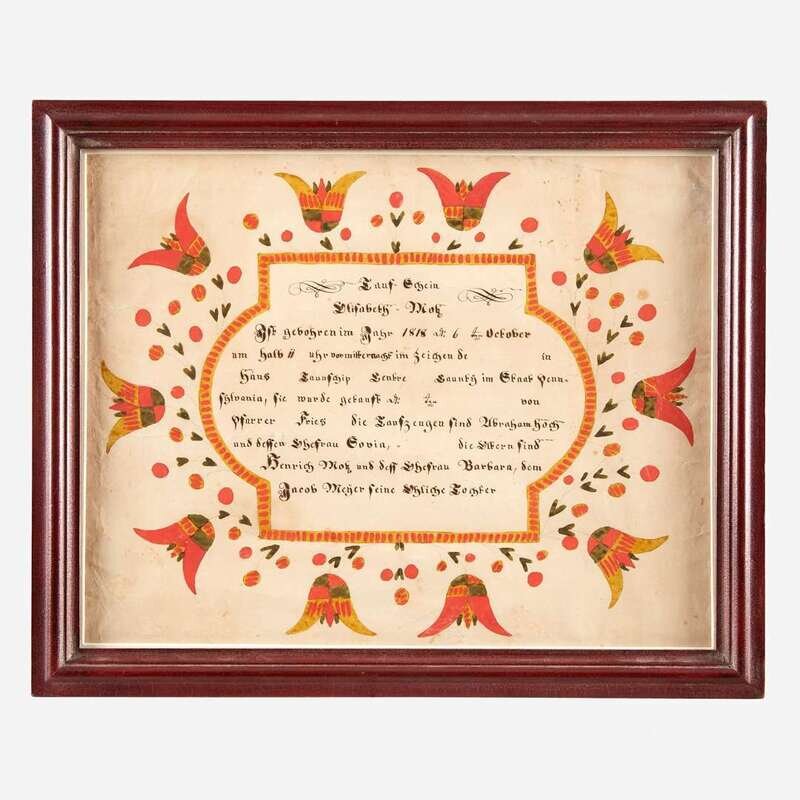 Tauf-Schein
Elisabeth - Motz
Ist gebohren im Jahr 1818 October
um halb 11 uhr vormitternags im Zeichen de in
Haus Taunschip Centre Caunty im Staat Penn-
sylvania, sie wurde getauft von
Pfarrer Fries die Taufzeugen sind Abraham Höch
und dessen Ehefrau Sovia, die Eltern sind
Henrich Motz und dess Ehefrau Barbara, dem
Jacob Meÿer seine Ehliche Tochter